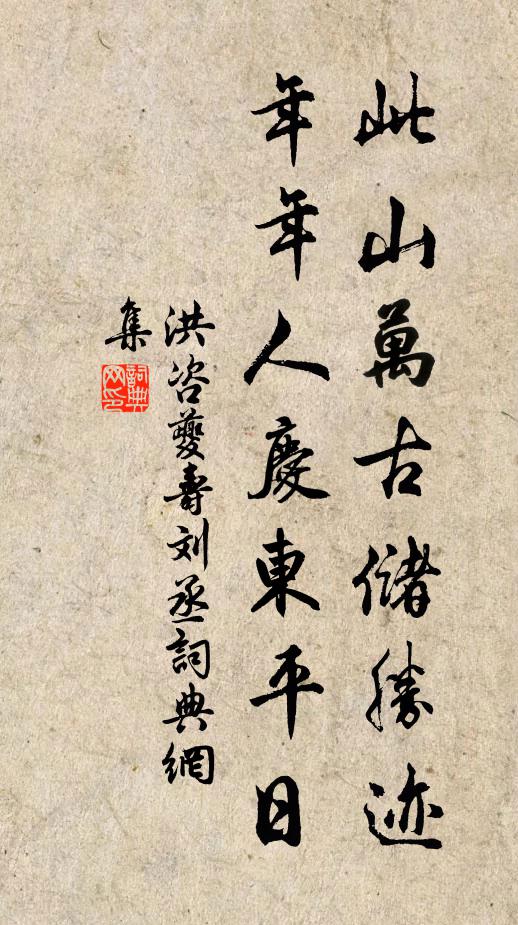 此山萬古儲勝迹
年年人慶東平日
洪咨夔壽刘丞詞典網
集
詞典网印